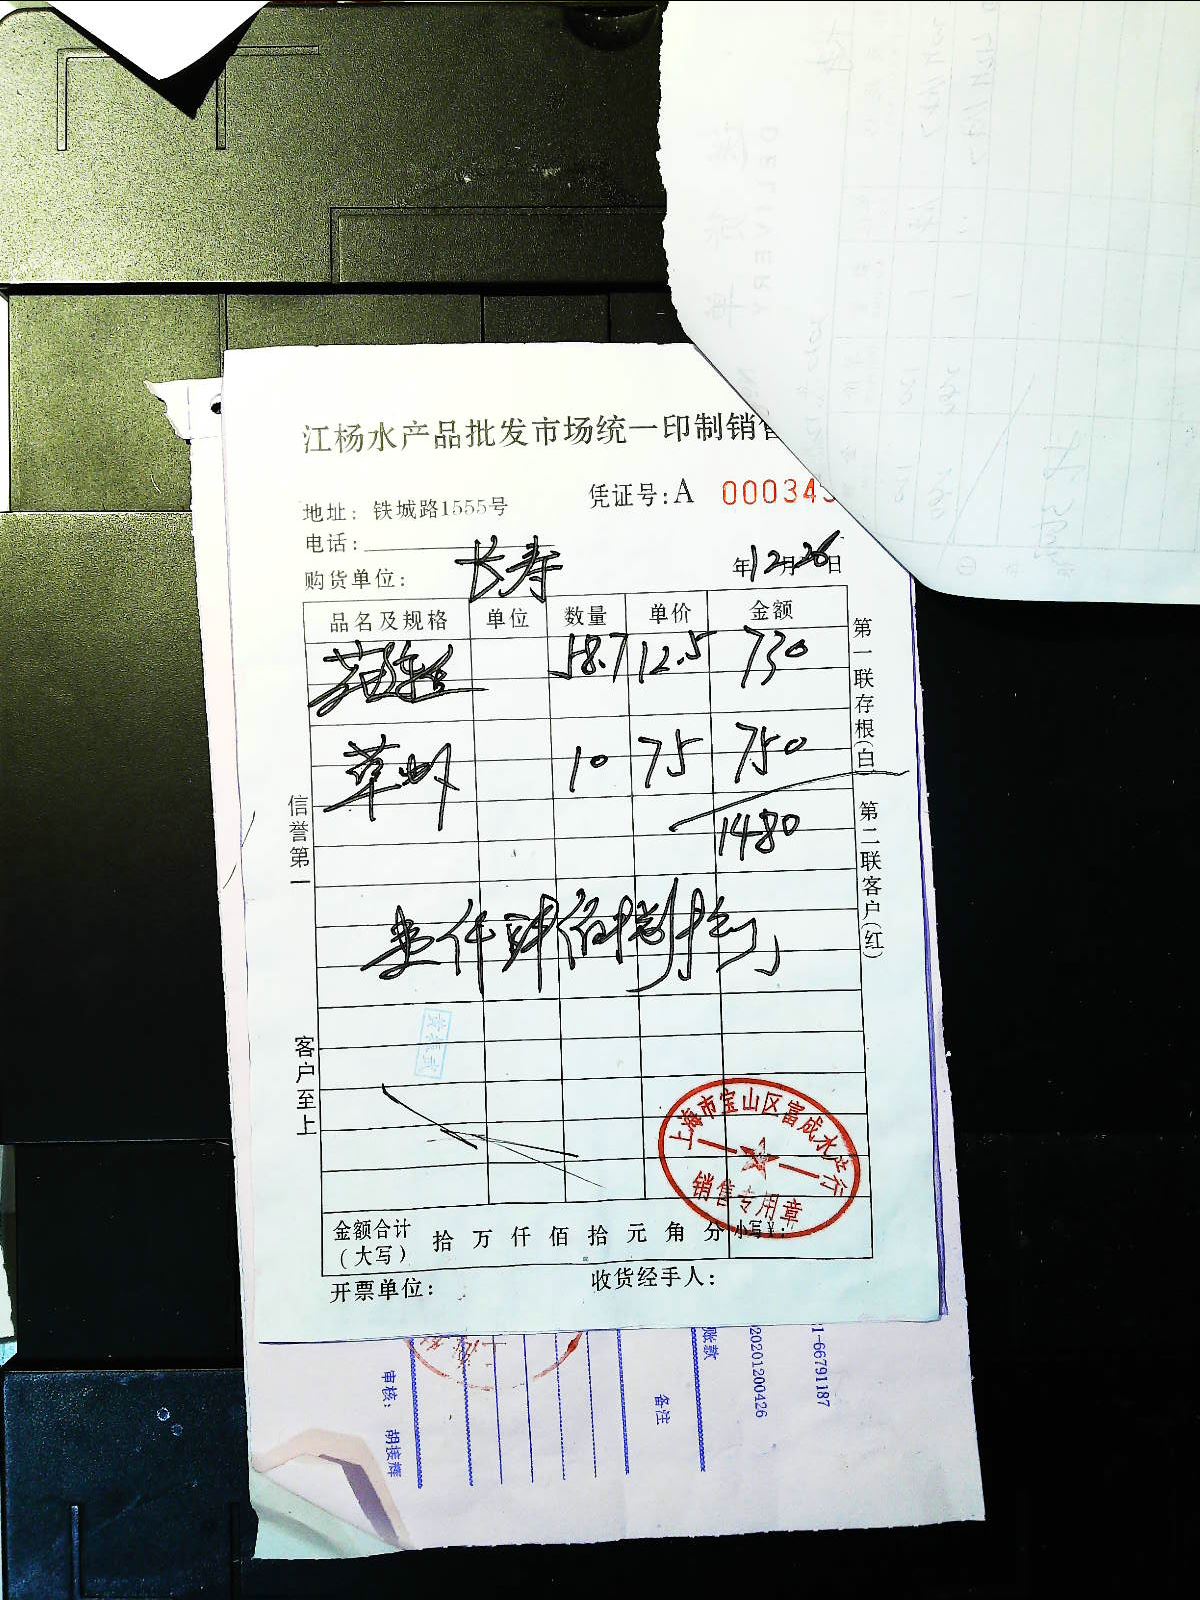 江杨水产品批发市场统一印制销售
地址：铁城路1555号
凭证号：A 000345
电话：
购货单位：长寿
年12月26日
品名及规格 单位 数量 单价 金额
58.7 12.5 730
草虾 10 75 750
1480
壹仟肆佰捌拾
信誉第一
客户至上
第一联存根（白）
第二联客户（红）
上海市宝山区富成水产行
销售专用章
金额合计（大写） 拾 万 仟 佰 拾 元 角 分 小写￥：
开票单位：
收货经手人：
账款
备注
审核： 胡接辉
020201200426
1-66791187
DELIVERY